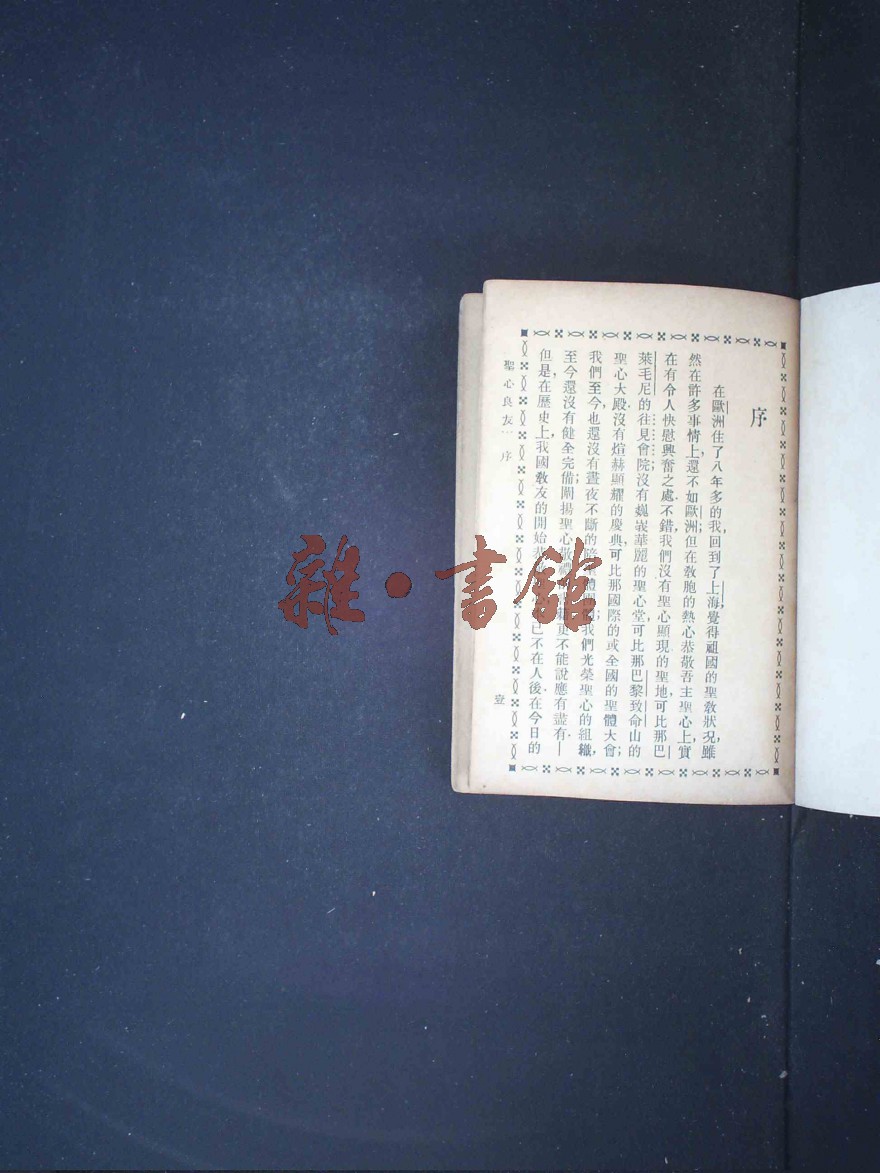 序
在歐洲住了八年多的我,回到了上海,覺得祖國的聖教狀况,雖
然在許多事情上,還不如歐洲;但在教胞的熱心恭敬吾主聖心上,實
在有令人快慰興奮之處.不錯,我們沒有聖心顯現的聖地,可比那巴
萊毛尼的往見會院;沒有巍峩華麗的聖心堂,可比那巴黎致命山的
聖心大殿;沒有煊赫顯耀的慶典,可比那國際的或全國的聖體大會;
我們至今,也還沒有晝夜不斷的 聖體 我們光榮聖心的組織,
至今還沒有健全完備;闡揚聖心敬禮 更不能說應有盡有——
但是在歷史上,我國教友的開始恭 已不在人後.在今日的
聖心良友 序
壹
雜·書館